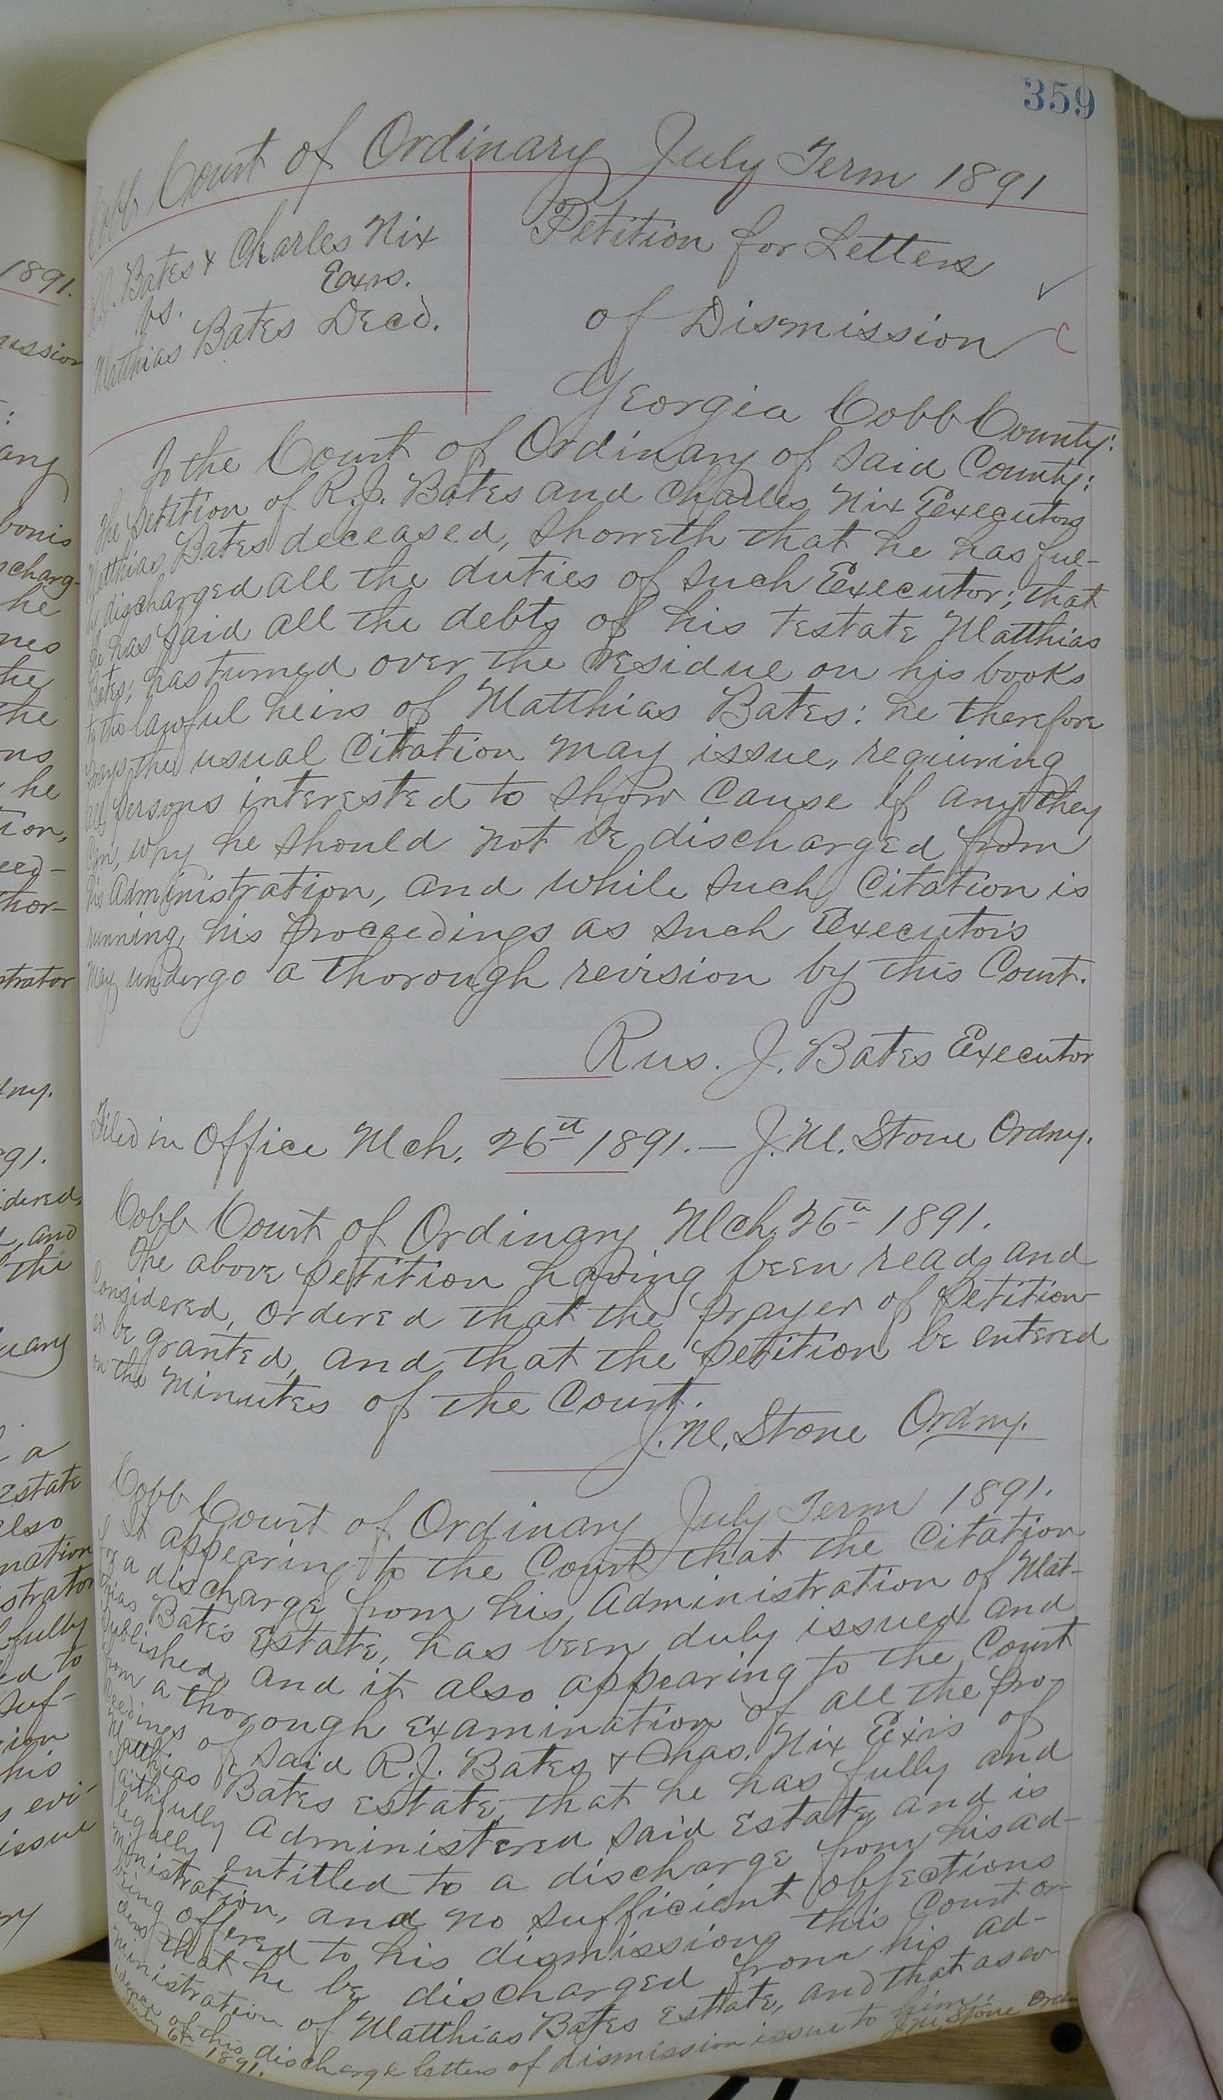 359
Cobb Court of Ordinary July Term 1891
R.J. Bates & Charles Nix
Exrs.
vs.
Matthias Bates Decd.
Petition for Letters
of Dismission
Georgia Cobb County:
To the Court of Ordinary of said County:
The petition of R.J. Bates and Charles Nix Executors
Matthias Bates deceased, showeth that he has ful-
ly discharged all the duties of such Executor; that
he has paid all the debts of his testate Matthias
Bates; has turned over the residue on his books
to the lawful heirs of Matthias Bates: he therefore
prays the usual Citation may issue, requiring
all persons interested to show cause if any they
can, why he should not be discharged from
his Administration, and while such Citation is
running, his proceedings as such Executors
may undergo a thorough revision by this Court.
Rus. J. Bates Executor
Filed in Office Mch. 26th 1891. — J.M. Stone Ordny.
Cobb Court of Ordinary Mch. 26th 1891.
The above petition having been read and
Considered, ordered that the prayer of Petition-
er be granted, and that the petition be entered
on the Minutes of the Court.
J.M. Stone Ordny.
Cobb Court of Ordinary July Term 1891.
It appearing to the Court that the Citation
for a discharge from his Administration of Mat-
thias Bates Estate, has been duly issued and
published, and it also appearing to the Court
from a thorough examination of all the pro-
ceedings of said R.J. Bates & Chas. Nix Exrs of
Matthias Bates estate, that he has fully and
faithfully administered said Estate, and is
legally entitled to a discharge from his ad-
ministration, and no sufficient objections
being offered to his dismission, this Court or-
ders that he be discharged from his ad-
ministration of Matthias Bates Estate, and that as ev-
idence of this discharge letters of dismission issue to him.
July 6th 1891.
J.M. Stone Ordny
1891.
bonis
he
the
he
strator
91.
and
the
a
Estate
also
fully
ed to
his
issue